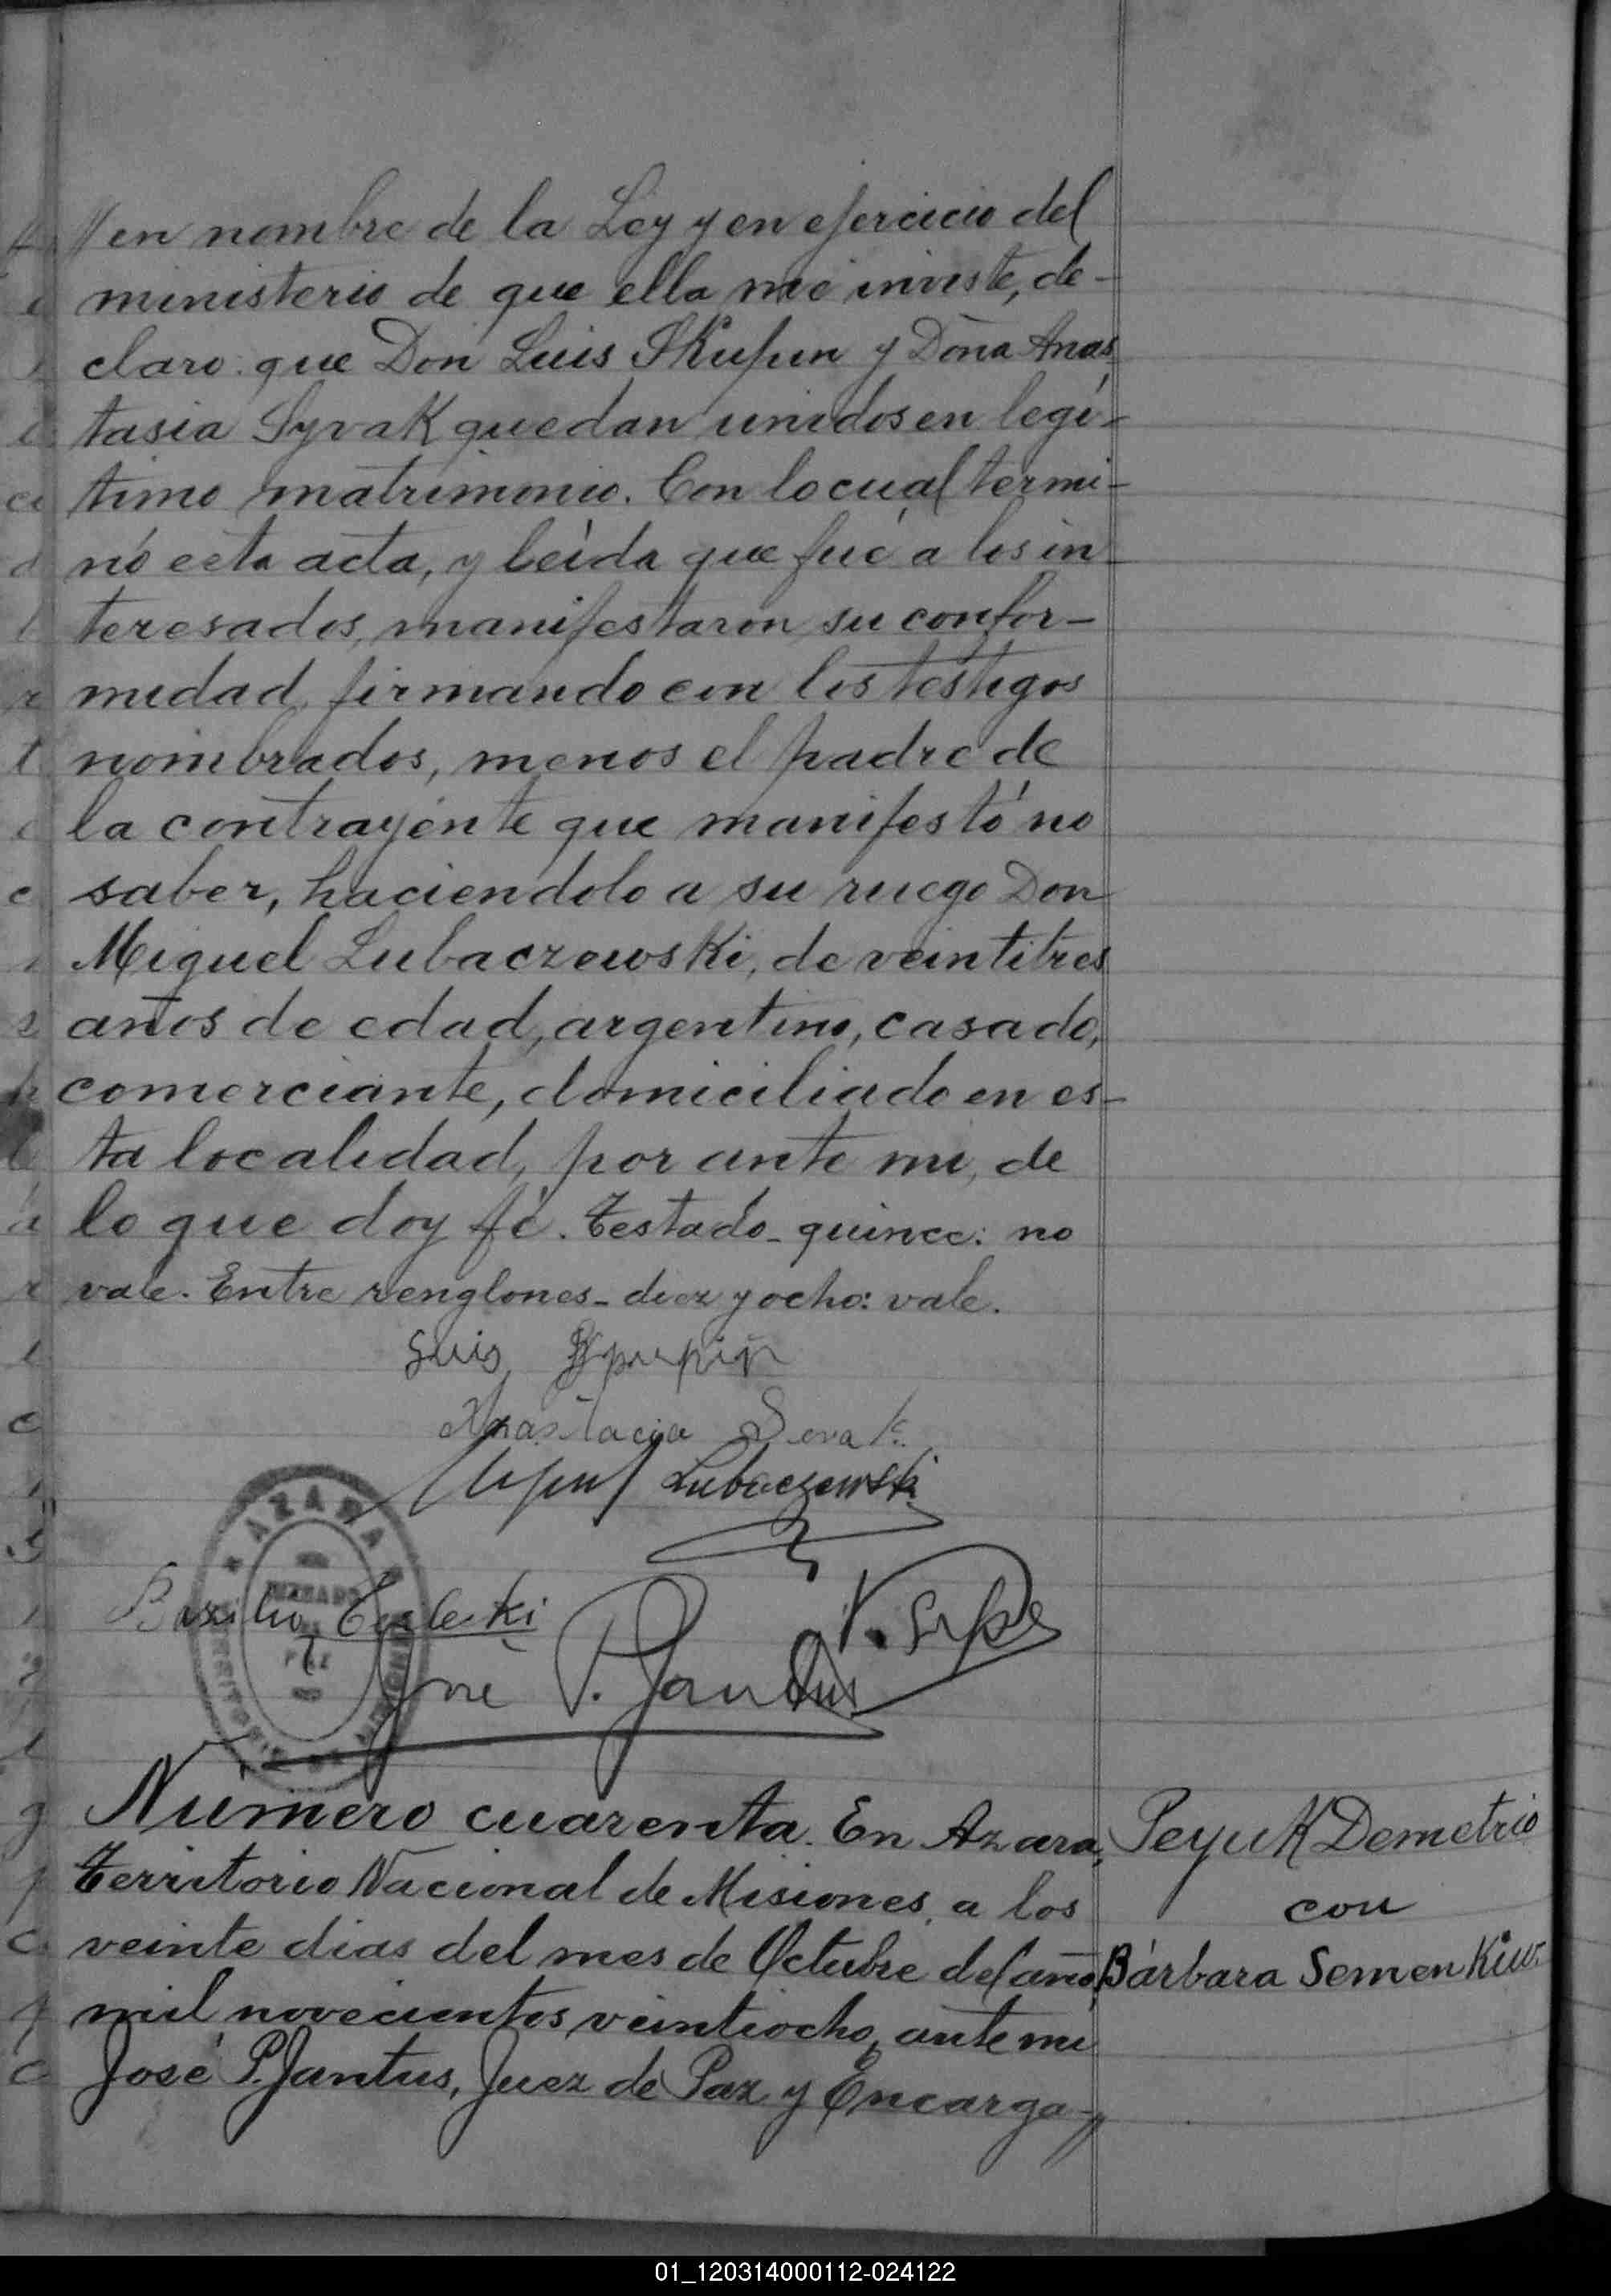 // en nombre de la Ley y en ejercicio del
ministerio de que ella me inviste, de-
claro: que Don Luis SKupun y Doña Anas
tasia SyvaK quedan unidos en legí-
timo matrimonio. Con lo cual termi-
nó esta acta, y leída que fué a los in-
teresados, manifestaron su confor-
midad, firmando con los testigos
nombrados, menos el padre de
la contrayente que manifestó no
saber, haciendolo a su ruego Don
Miguel LubaczewsKi, de veintitres
años de edad, argentino, casado,
comerciante, domiciliado en es-
ta localidad, por ante mi, de
lo que doy fé. Testado - quince: no
vale. Entre renglones - diez y ocho: vale.
Luis
Anastacia
Lubaczewski
AZARA
Basilio
José P. Jantus
Número cuarenta. En Azara,
Territorio Nacional de Misiones, a los
veinte dias del mes de Octubre del año
mil novecientos veintiocho, ante mi
José P. Jantus, Juez de Paz y Encarga-//
PeyuK Demetrio
con
Bárbara SemenKiw.
01_120314000112-024122